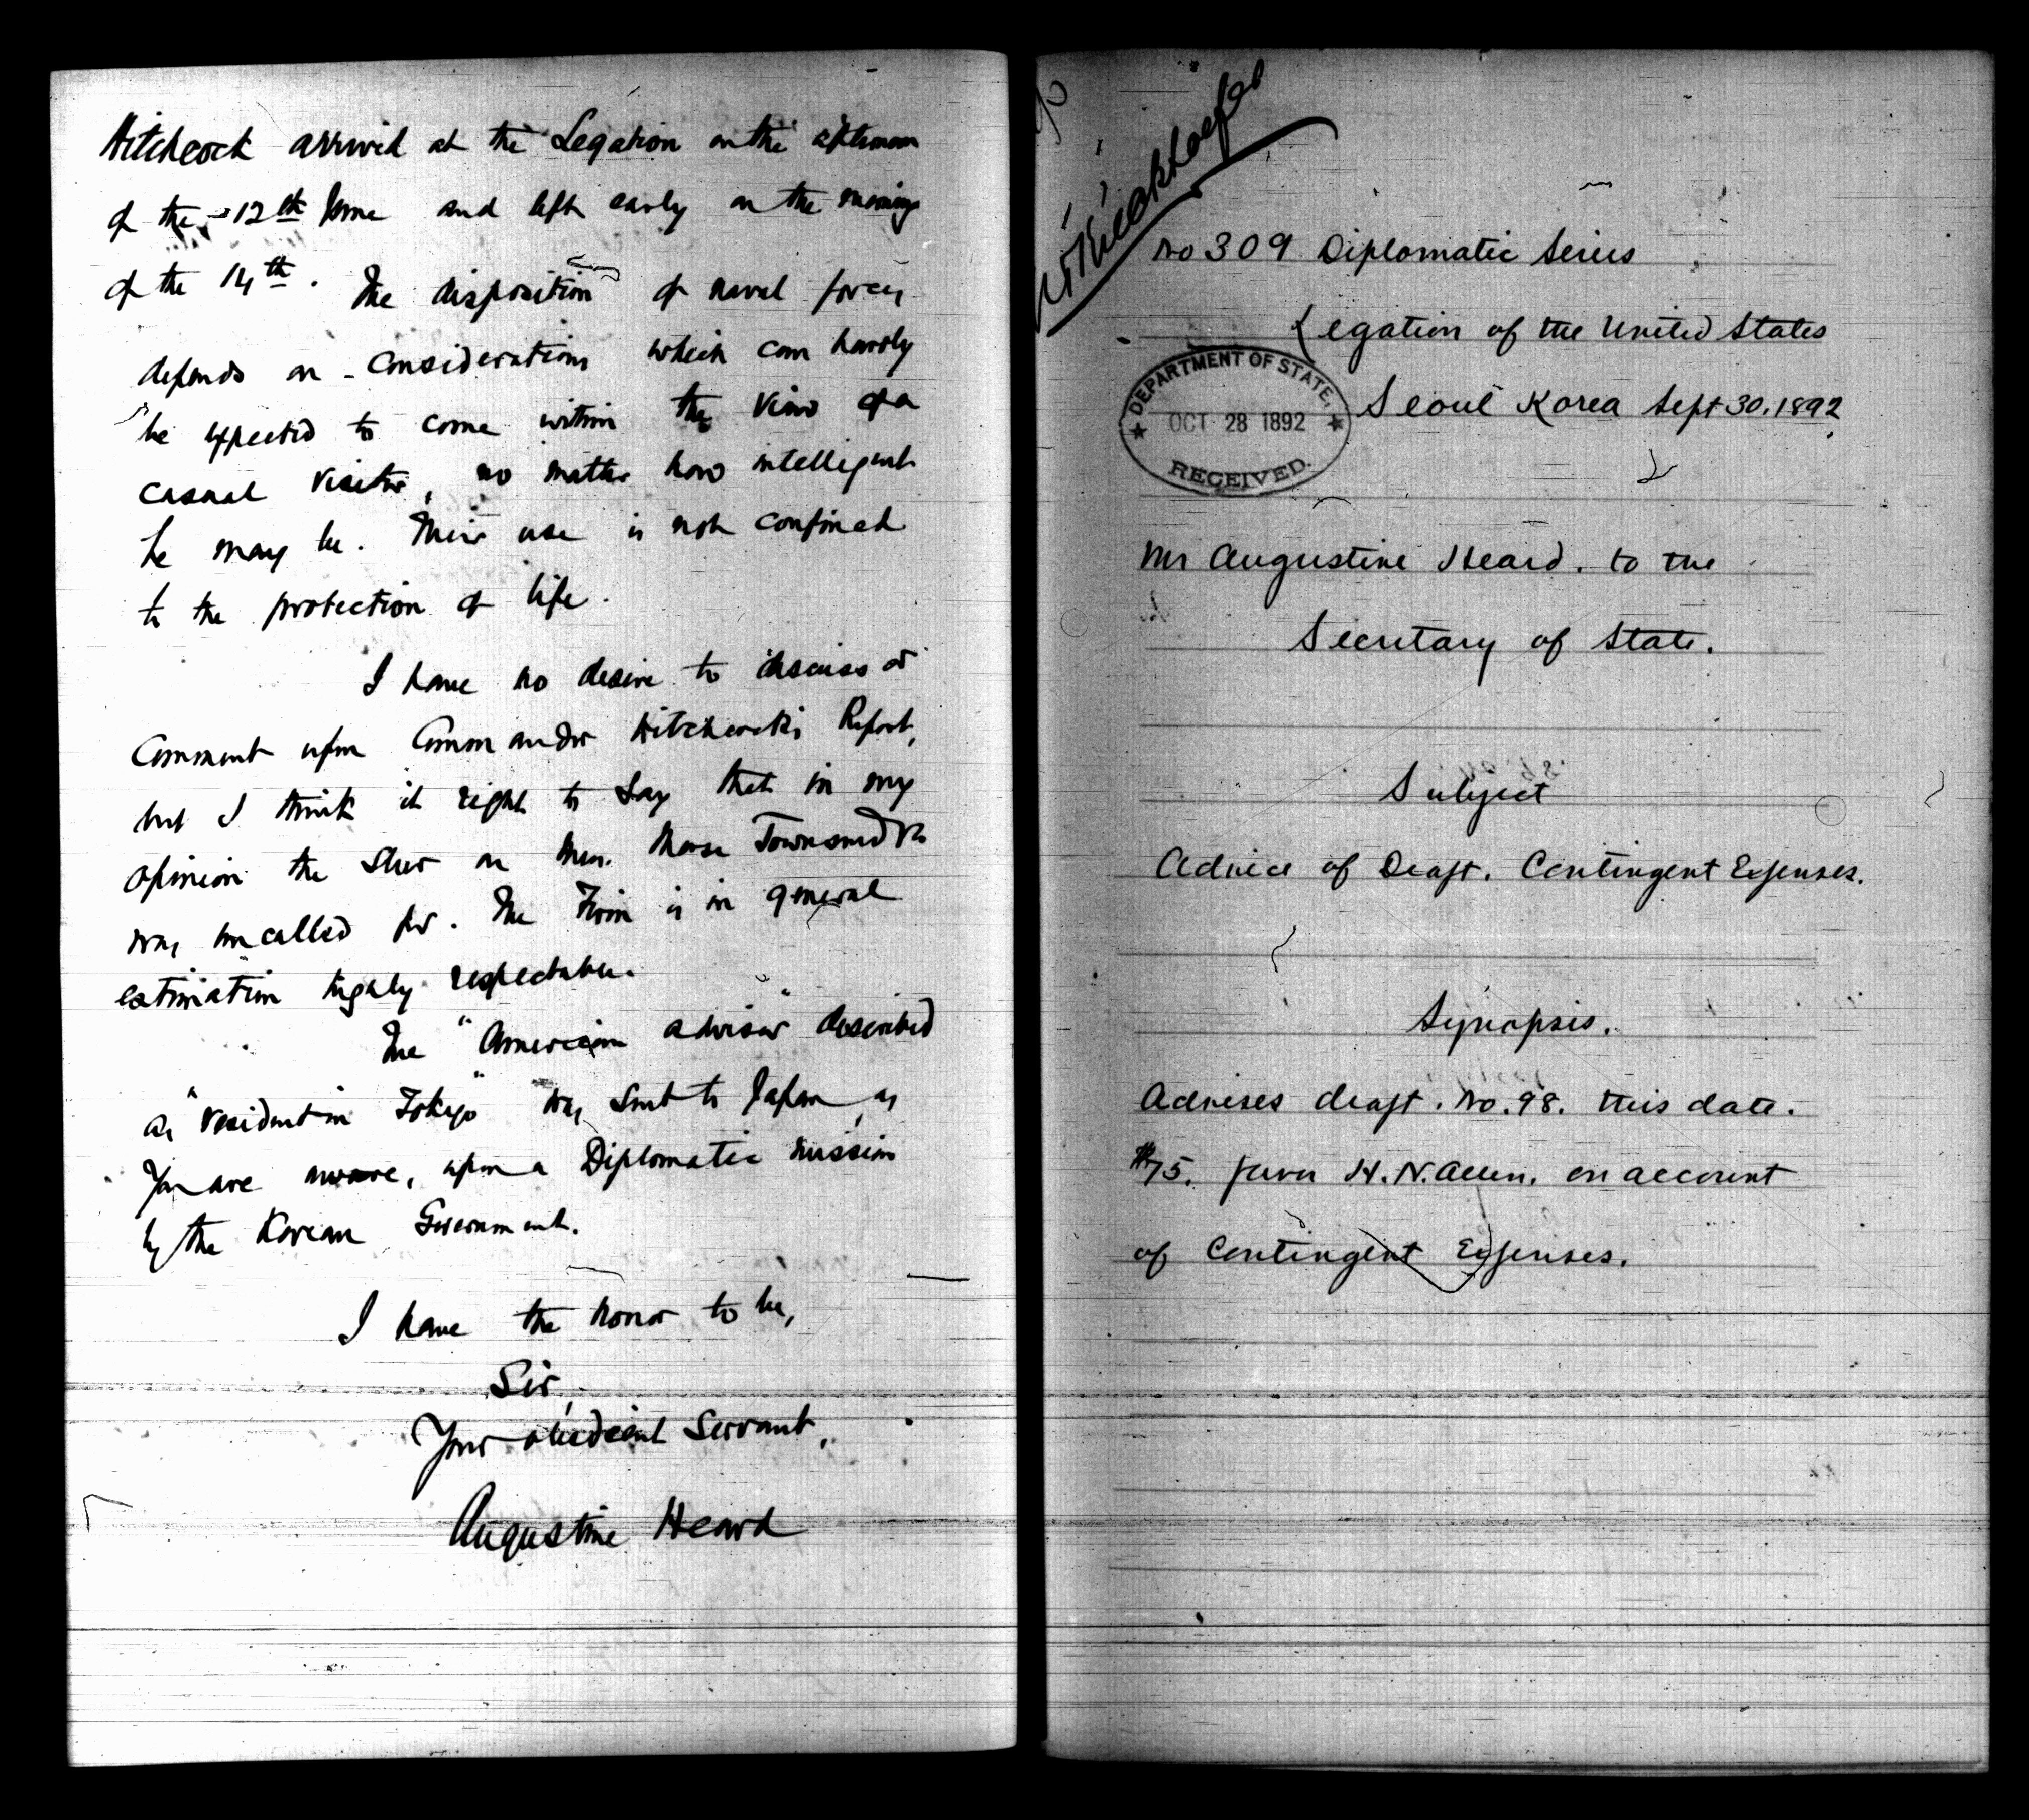 Hitchcock arrived at the Legation on the afternoon
of the 12th June and left early on the morning
of the 14th. The disposition of naval forces
depends on considerations which can hardly
be expected to come within the view of a
casual visitor, no matter how intelligent
he may be. Their use is not confined
to the protection of life.
I have no desire to discuss or
comment upon Commander Hitchcock's Report,
but I think it right to say that in my
opinion the slur on Mess. Morse Townsend & Co
was uncalled for. The Firm is in general
estimation highly respectable.
The "American adviser" described
as "resident in Tokyo" was sent to Japan, as
you are aware, upon a Diplomatic mission
by the Korean Government.
I have the honor to be,
Sir,
Your obedient Servant,
Augustine Heard
No 309 Diplomatic Series
Legation of the United States
Seoul Korea Sept 30. 1892
DEPARTMENT OF STATE,
OCT 28 1892
RECEIVED.
Mr Augustine Heard. to the
Secretary of State.
Subject
Advice of Draft. Contingent Expenses.
Synopsis.
Advises draft. No. 98. this date.
$75. favor H. N. Allen. on account
of Contingent Expenses.